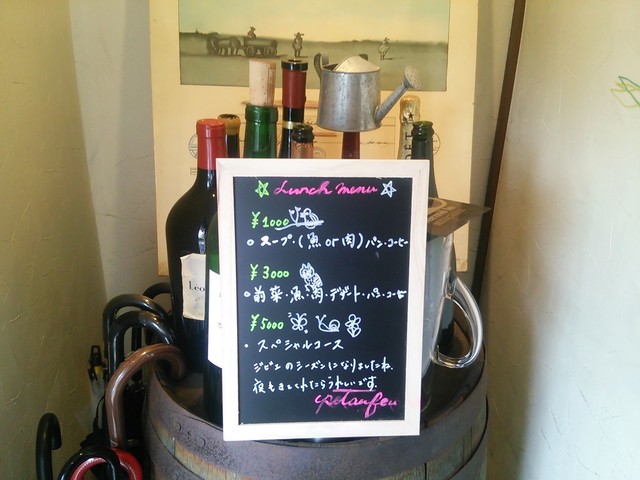 Lunch menu
¥1000
スープ・(魚 or 肉) パン・コーヒー
¥3000
前菜・魚・肉・デザート・パン・コーヒー
¥5000
・スペシャルコース
ジビエのシーズンになりましたね。
夜もきてくれたらうれしいです。
potaufeu
Léo